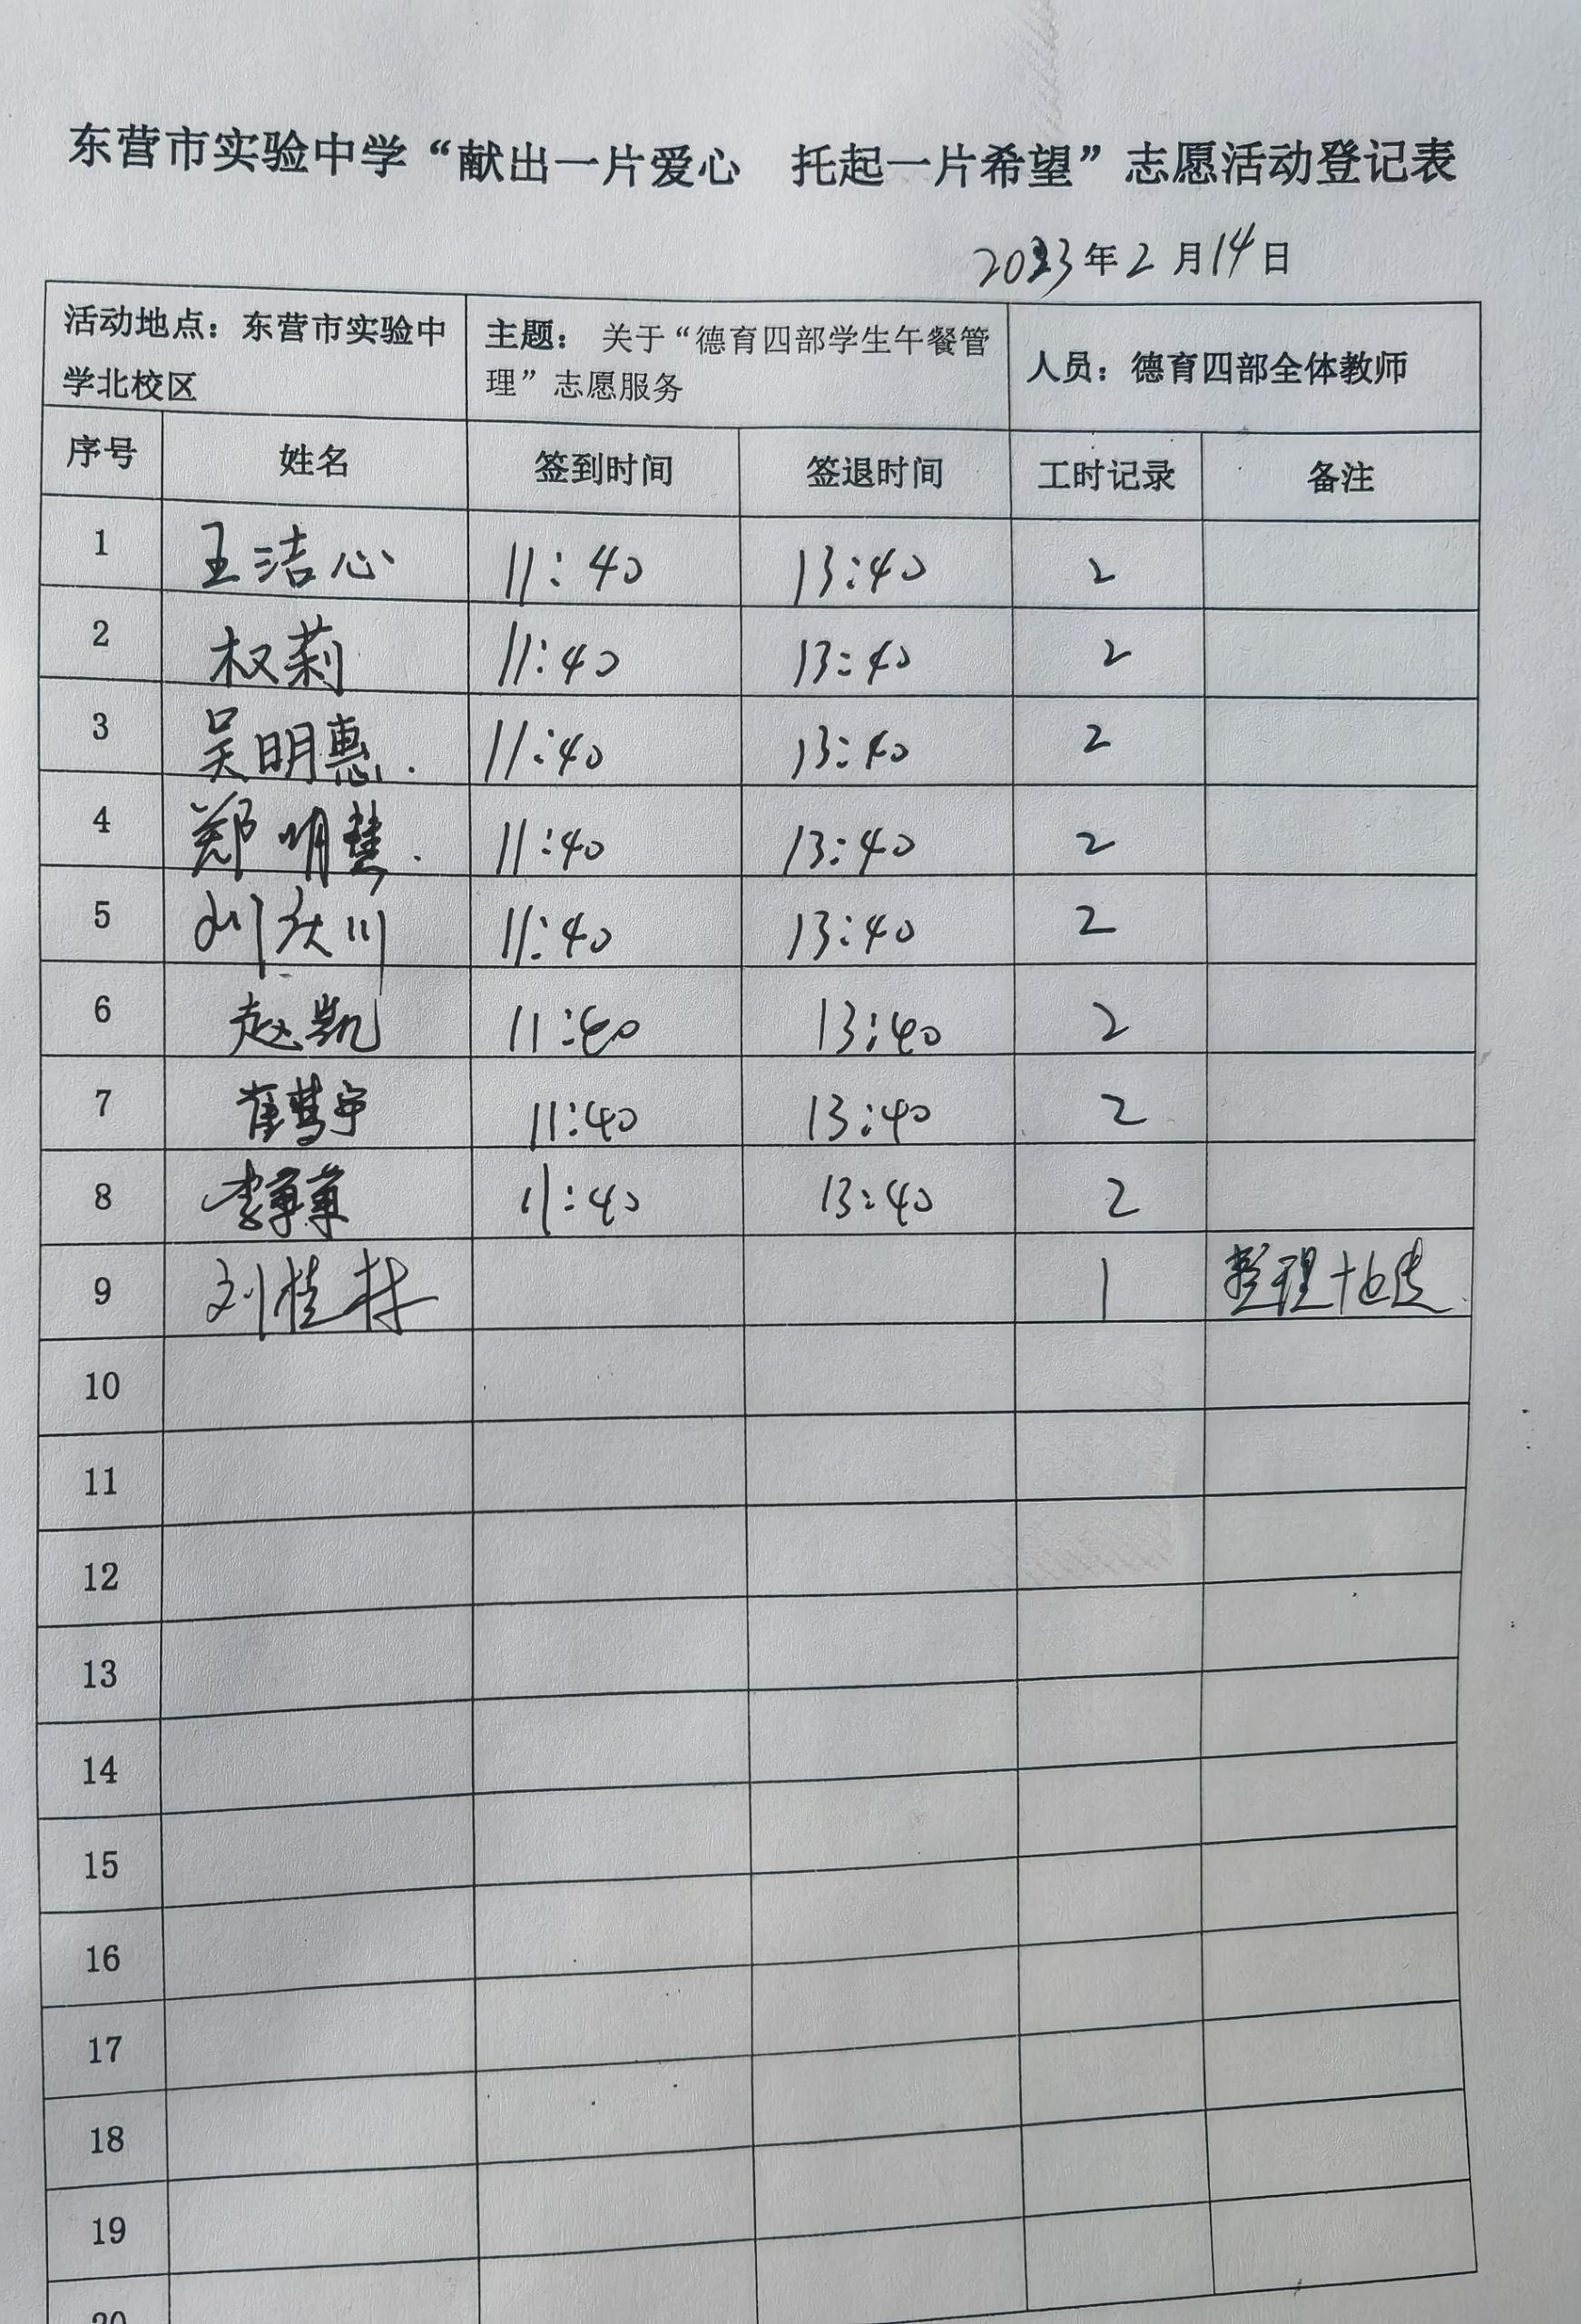 东营市实验中学“献出一片爱心 托起一片希望”志愿活动登记表
2023年2月14日
活动地点：东营市实验中学北校区 主题：关于“德育四部学生午餐管理”志愿服务 人员：德育四部全体教师
序号 姓名 签到时间 签退时间 工时记录 备注
1 王洁心 11:40 13:40 2
2 权莉 11:40 13:40 2
3 吴明惠 11:40 13:40 2
4 郑明慧 11:40 13:40 2
5 刘庆川 11:40 13:40 2
6 赵凯 11:40 13:40 2
7 11:40 13:40 2
8 李 11:40 13:40 2
9 刘桂林 1 整理
10
11
12
13
14
15
16
17
18
19
20